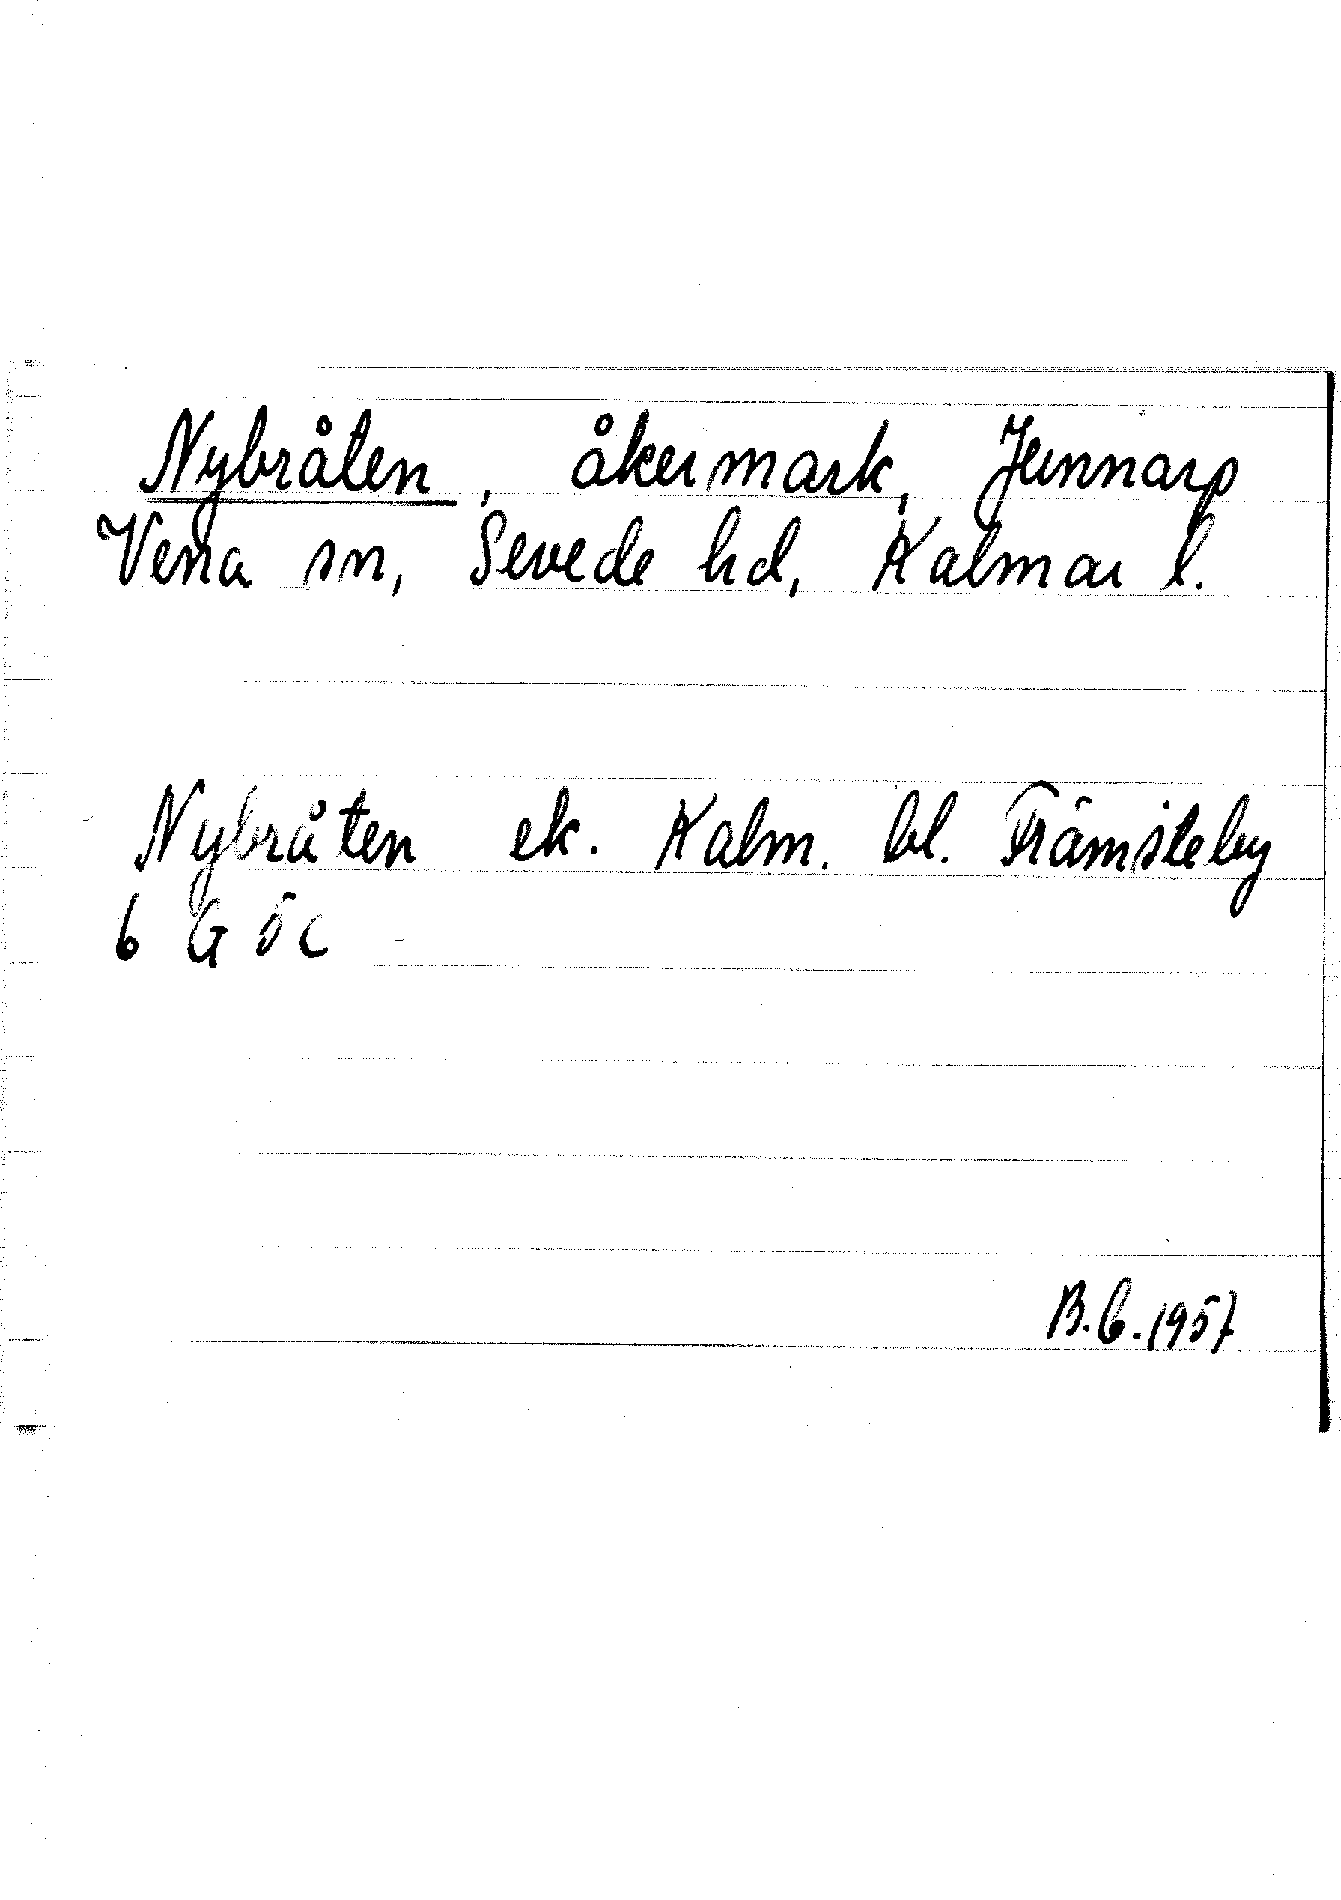 Nybråten, åkermark, Jennarp
Vena sn, Sevede hd, Kalmar l.
Nybråten ek. Kalm. bl. Främsteby
6 G ö c
B.G. 1957